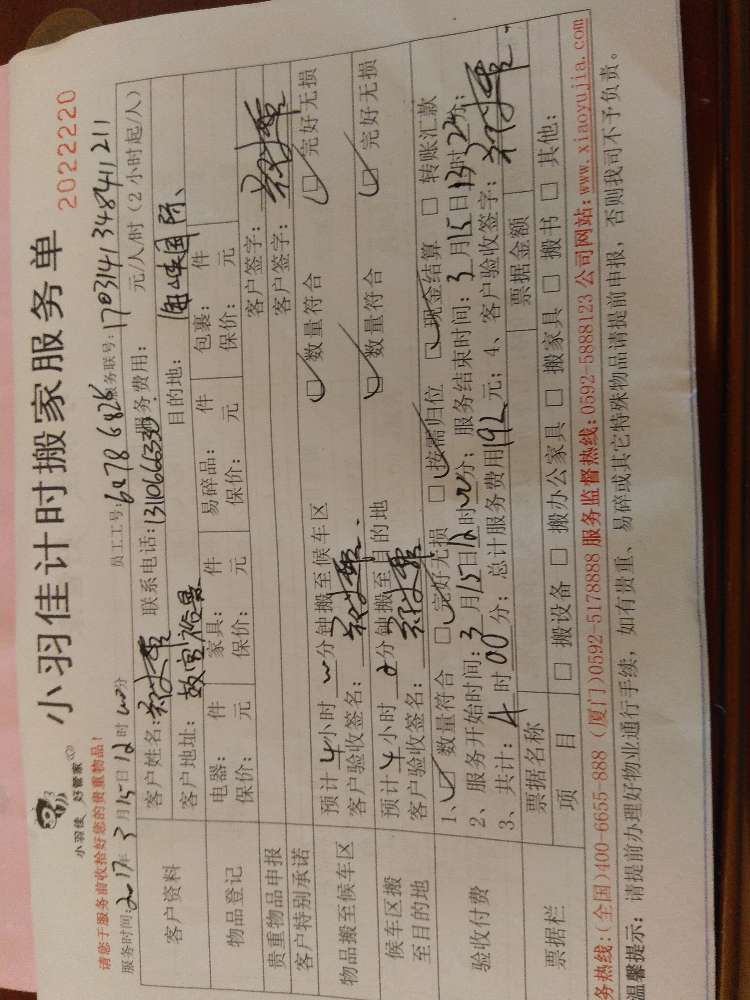 小羽佳 好管家
小羽佳计时搬家服务单
2022220
请您于服务前收拾好您的贵重物品!
服务时间:2017年3月15日12时00分 员工工号:6078 6828 服务联号:1703141348841211
客户资料
客户姓名: 联系电话:1311066330 服务费用: 元/人/时(2小时起/人)
客户地址:故宫裕景 目的地:海峡国际、
物品登记
电器: 件 家具: 件 易碎品: 件 包裹: 件
保价: 元 保价: 元 保价: 元 保价: 元
贵重物品申报 客户签字:
客户特别承诺 客户签字:
物品搬至候车区
预计4小时00分钟搬至候车区 数量符合 完好无损
客户验收签名:
候车区搬至目的地
预计4小时0分钟搬至目的地 数量符合 完好无损
客户验收签名:
验收付费
1、 数量符合 完好无损 按需归位 现金结算 转账汇款
2、服务开始时间:3月15日12时00分; 服务结束时间:3月15日13时22分;
3、共计:4时00分; 总计服务费用192元; 4、客户验收签字:
票据栏
票据名称 票据金额
项目 搬设备 搬办公家具 搬家具 搬书 其他:
务热线:(全国)400-6655-888 (厦门)0592-5178888 服务监督热线:0592-5888123 公司网站:www.xiaoyujia.com
温馨提示: 请提前办理好物业通行手续, 如有贵重、易碎或其它特殊物品请提前申报, 否则我司不予负责。